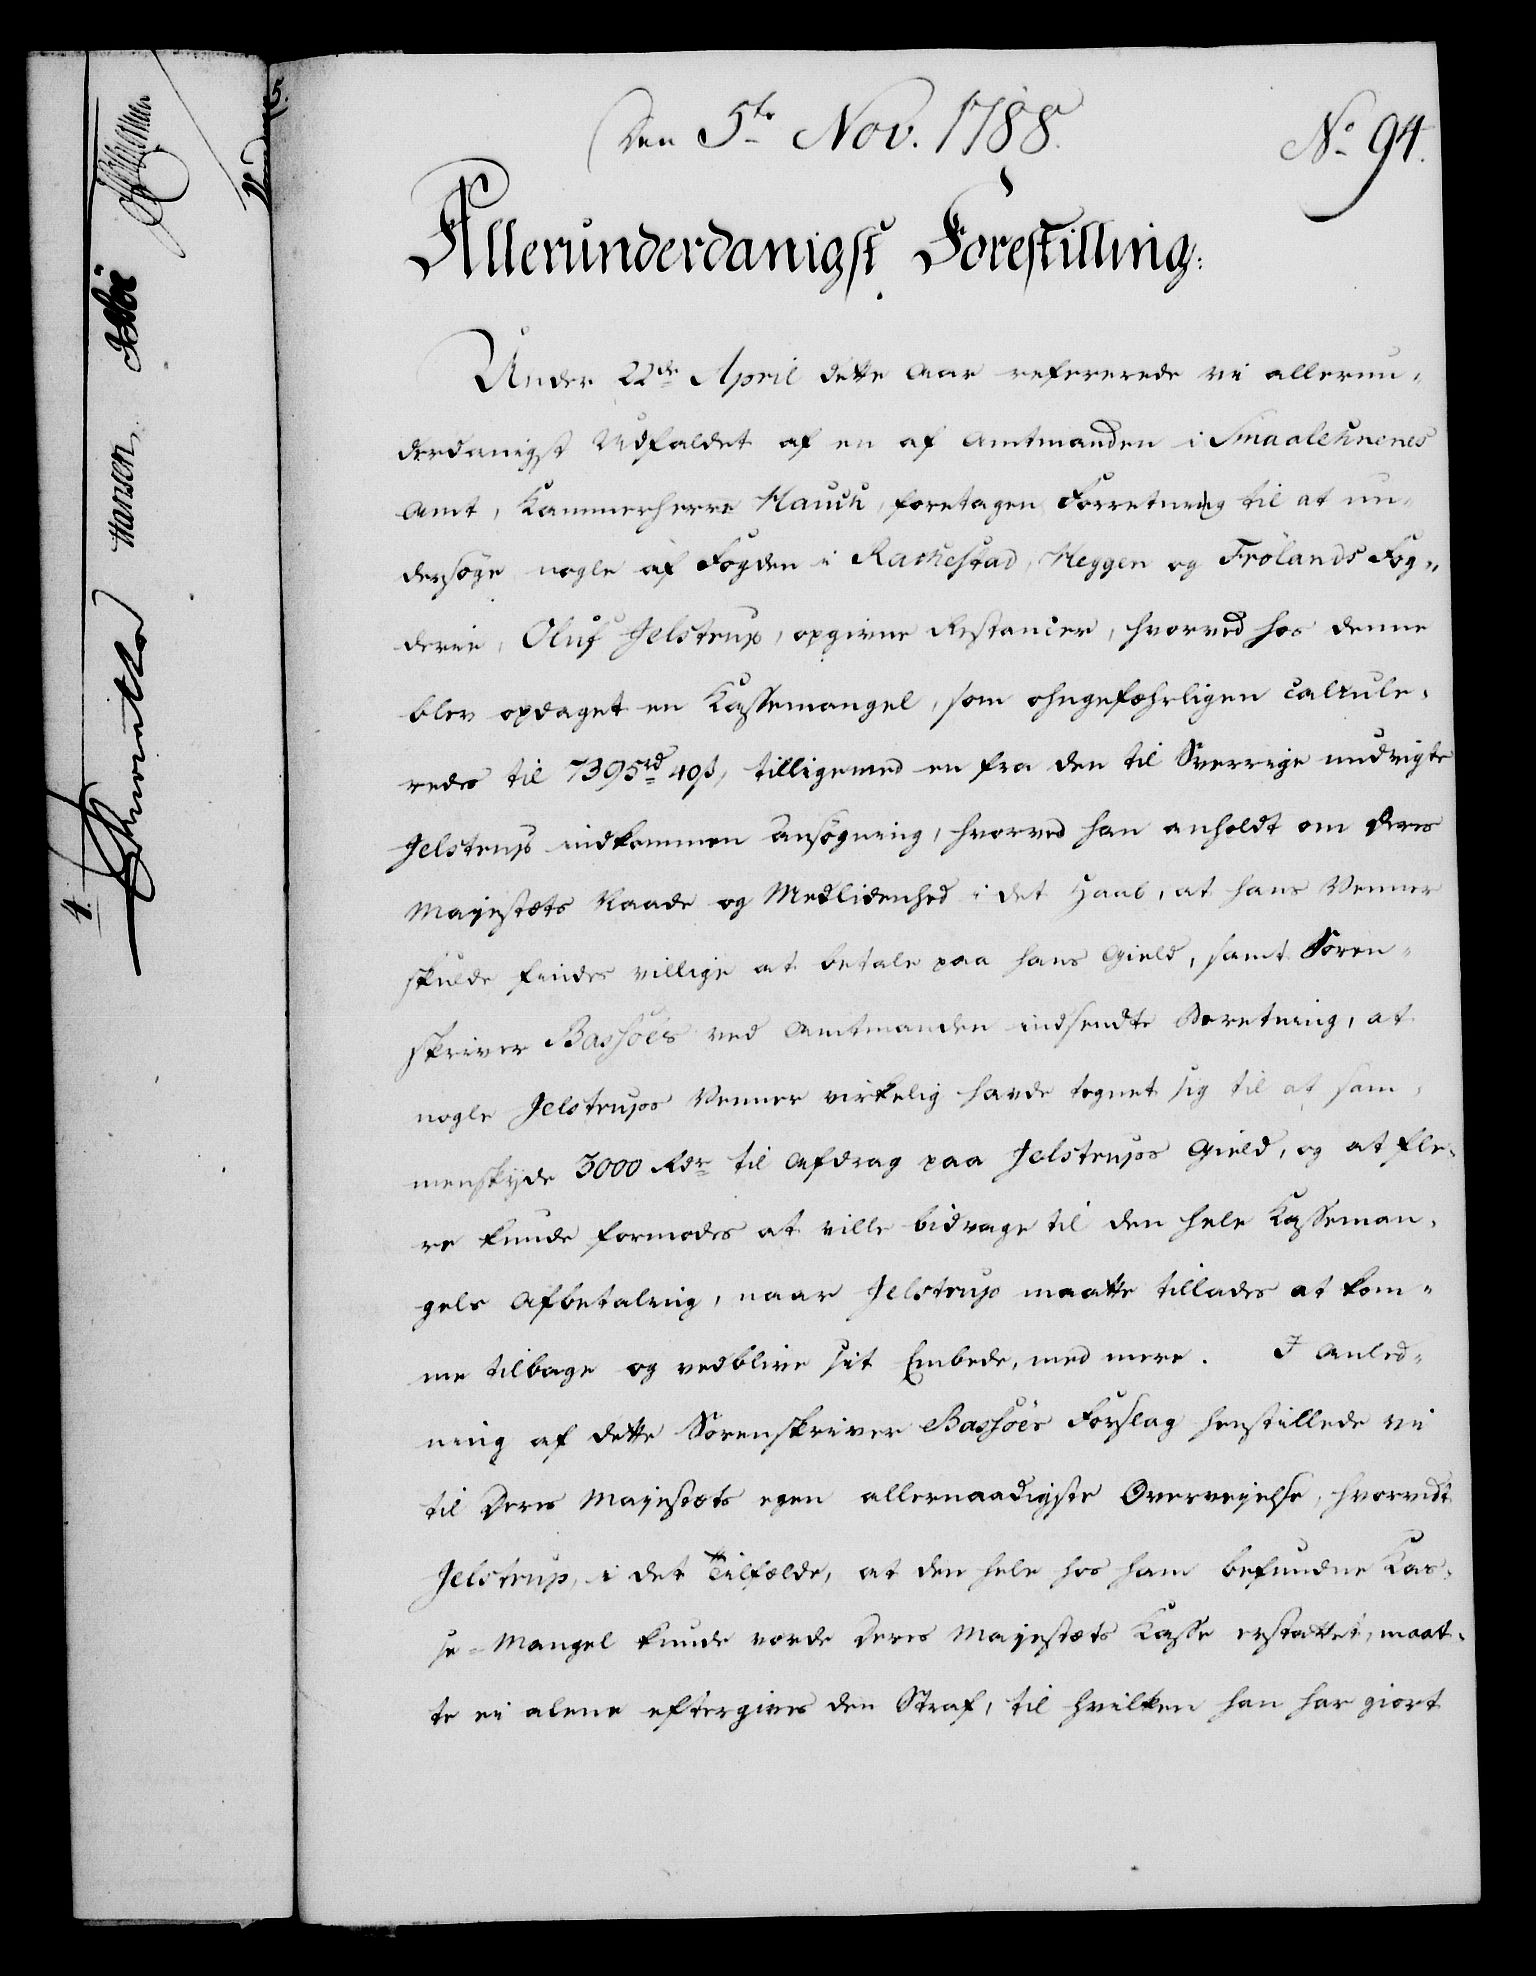 Den 5te Nov. 1788.
No 94.
Allerunderdanigst Forestilling:
Under 22de April dette Aar refererede vi allerun-
derdanigst Udfaldet af en af Amtmanden i Smaalehnenes
Amt, Kammerherre Hauch, foretagen Forretning til at un-
dersøge nogle af Fogden i Rakkestad, Heggen og Frölands Fog-
derie, Oluf Jelstrup, opgivne Restancer, hvorved hos denne
blev opdaget en Kassemangel, som ohngefæhrligen calcule-
redes til 7395rd 49s, tilligemed en fra den til Sverrige undvigte
Jelstrup indkommen Ansøgning, hvorved han anholdt om Deres
Majestæts Naade og Medlidenhed i det Haab, at hans Venner
skulde findes villige at betale paa hans Gield, samt Soren-
skriver Bassöes ved Amtmanden indsendte Beretning, at
nogle Jelstrups Venner virkelig havde tegnet sig til at sam-
menskyde 3000 Rdr til Afdrag paa Jelstrups Gield, og at fle-
re kunde formodes at ville bidrage til den hele Kasseman-
gels Afbetaling, naar Jelstrup maatte tillades at kom-
me tilbage og vedblive sit Embede, med mere. I Anled-
ning af dette Sorenskriver Bassöes Forslag henstillede vi
til Deres Majestæts egen allernaadigste Overvejelse, hvorvidt
Jelstrup, i det Tilfælde, at den hele hos ham befundne Kas-
se-Mangel kunde vorde Deres Majestæts Kasse erstattet, maat-
te ei alene eftergives den Straf, til hvilken han har giort
Hansen
4.